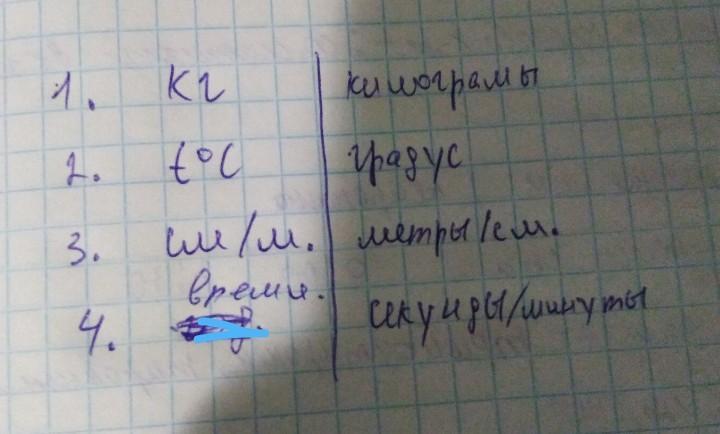 1. кг килограмы
2. t°C градус
3. см/м. метры/см.
время.
4. секунды/минуты